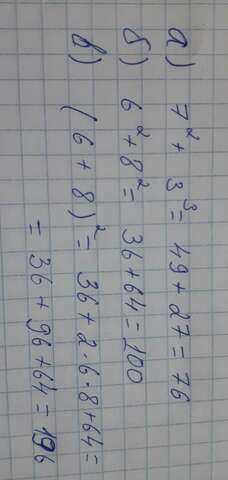 а) 7² + 3³ = 49 + 27 = 76
б) 6² + 8² = 36 + 64 = 100
в) (6 + 8)² = 36 + 2 · 6 · 8 + 64 =
= 36 + 96 + 64 = 196